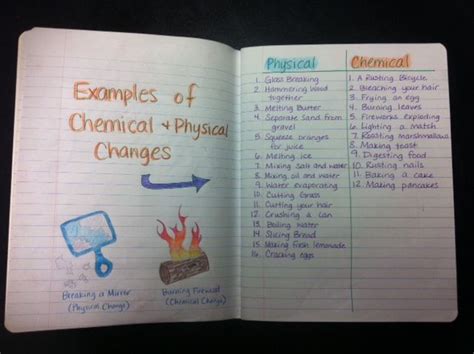 Examples of
Chemical + Physical
Changes
Breaking a Mirror
(Physical Change)
Burning Firewood
(Chemical Change)
Physical
1. Glass Breaking
2. Hammering wood
together
3. Melting Butter
4. Separate sand from
gravel
5. Squeeze oranges
for juice
6. Melting ice
7. Mixing salt and water
8. Mixing oil and water
9. Water evaporating
10. Cutting Grass
11. Cutting your hair
12. Crushing a can
13. Boiling water
14. Slicing Bread
15. Making fresh lemonade
16. Cracking eggs
Chemical
1. A Rusting Bicycle
2. Bleaching your hair
3. Frying an egg
4. Burning leaves
5. Fireworks exploding
6. Lighting a Match
7. Roasting marshmallows
8. Making toast
9. Digesting food
10. Rusting nails
11. Baking a cake
12. Making pancakes